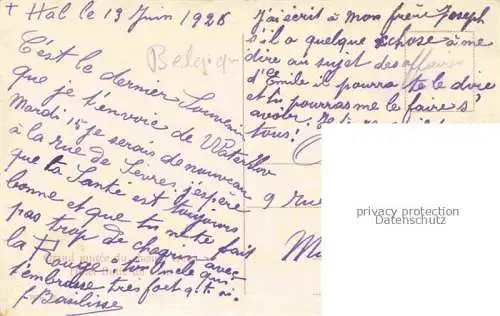 + Hal le 13 Juin 1926
C'est le dernier Souvenir
que je t'envoie de Waterloo
Mardi 15 je serais de nouveau
à la rue de Sèvres, j'espère
que ta Santé est toujours
bonne et que tu ne te fait
pas trop de chagrin avec
la Rouge à ton Oncle qui
t'embrasse très fort
f. Basilisse
Belgique
J'ai écrit à Mon frère Joseph
s'il a quelque chose à me
dire au sujet des affaires
d'Emile il pourra te le dire
et tu pourras me le faire s
avoir.
tous!
9 rue
privacy protection
Datenschutz